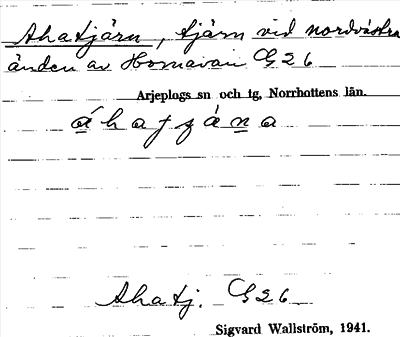 Ahatjärn, tjärn vid nordvästra
änden av Hornavan G26
Arjeplogs sn och tg, Norrbottens län.
Ahatj. G26
Sigvard Wallström, 1941.